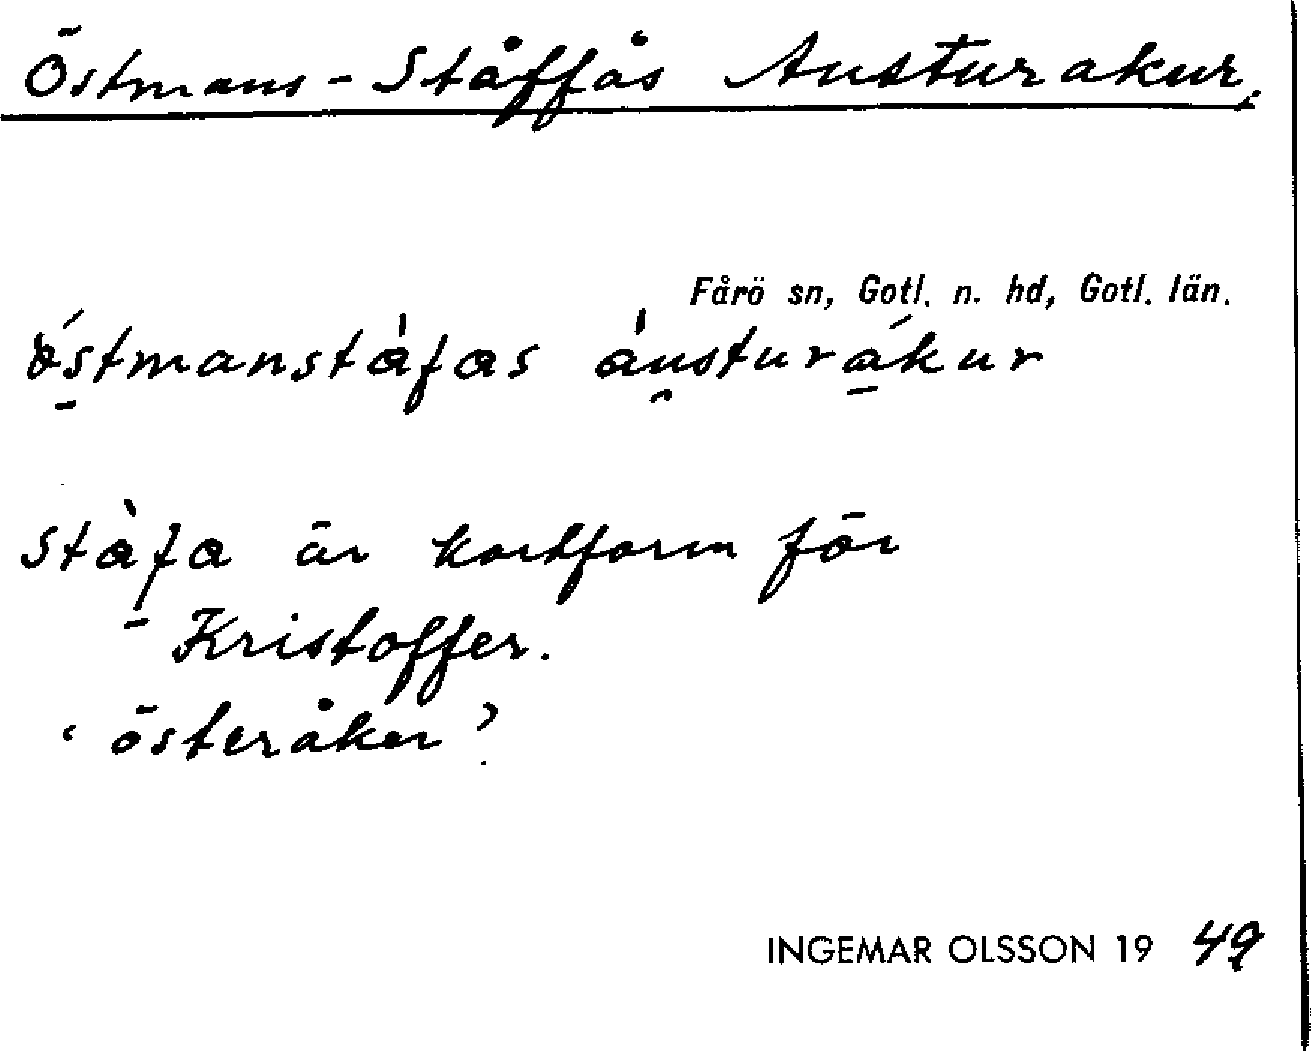 Östmans-Ståffås Austurakur,
Fårö sn, Gotl. n. hd, Gotl. län.
ö́stmanstàfas àusturákur
Stàfa är kortform för
Kristoffer.
‘österåker’
INGEMAR OLSSON 19 49